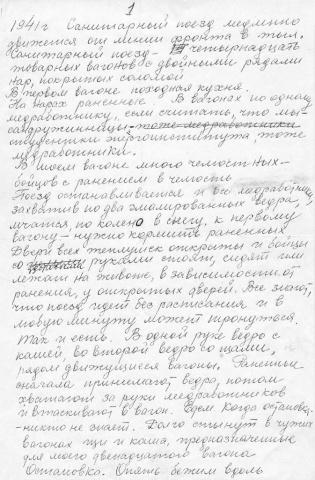 1
1941г Санитарный поезд медленно
движется от линии фронта в тыл.
Санитарный поезд - четырнадцать
товарных вагонов с двойными рядами
нар, покрытых соломой
В первом вагоне походная кухня.
На нарах раненные. В вагонах по одному
медработнику, если считать, что мы-
сандружинницы
студентки энергоинститута, тоже
медработники.
В моем вагоне много челюстных-
бойцов с ранением в челюсть
Поезд останавливается и все медработники,
захватив по два эмалированных ведра,
мчатся, по колено в снегу, к первому
вагону - нужно кормить раненных
Двери всех теплушек открыты и бойцы
со руками стоят, сидят или
лежат на животе, в зависимости от
ранения, у открытых дверей. Все знают,
что поезд идет без расписания и в
любую минуту может тронуться.
Так и есть. В одной руке ведро с
кашей, во второй ведро со щами,
рядом движущиеся вагоны. Раненные
сначала принимают ведра, потом
хватают за руки медработников
и втаскивают в вагон. Едем. Когда остановка
- никто не знает. Долго стынут в чужих
вагонах щи и каша, предназначенные
для моего двенадцатого вагона
Остановка. Опять бежим вдоль